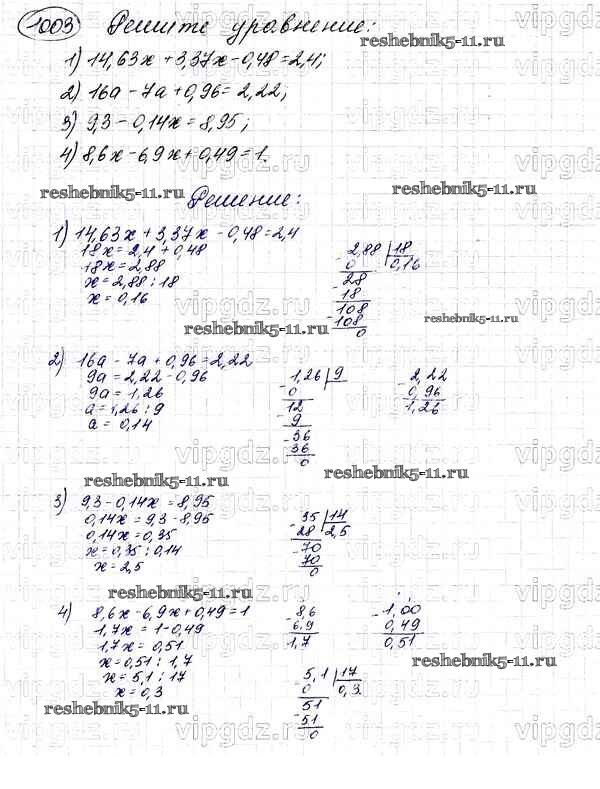 1003 Решите уравнение:
1) 14,63x + 3,37x - 0,48 = 2,4;
2) 16a - 7a + 0,96 = 2,22;
3) 9,3 - 0,14x = 8,95;
4) 8,6x - 6,9x + 0,49 = 1.
reshebnik5-11.ru
reshebnik5-11.ru
reshebnik5-11.ru
Решение:
1) 14,63x + 3,37x - 0,48 = 2,4
18x = 2,4 + 0,48
18x = 2,88
x = 2,88 : 18
x = 0,16
- 2,88 | 18
0 0,16
- 28
18
- 108
108
0
reshebnik5-11.ru
reshebnik5-11.ru
2) 16a - 7a + 0,96 = 2,22
9a = 2,22 - 0,96
9a = 1,26
a = 1,26 : 9
a = 0,14
- 1,26 | 9
0
- 12
9
- 36
36
0
- 2,22
0,96
1,26
reshebnik5-11.ru
reshebnik5-11.ru
3) 9,3 - 0,14x = 8,95
0,14x = 9,3 - 8,95
0,14x = 0,35
x = 0,35 : 0,14
x = 2,5
- 35 | 14
28 2,5
- 70
70
0
reshebnik5-11.ru
4) 8,6x - 6,9x + 0,49 = 1
1,7x = 1 - 0,49
1,7x = 0,51
x = 0,51 : 1,7
x = 5,1 : 17
x = 0,3
- 8,6
6,9
1,7
- 1,00
0,49
0,51
- 5,1 | 17
0 0,3
- 51
51
0
reshebnik5-11.ru
reshebnik5-11.ru
vipgdz.ru